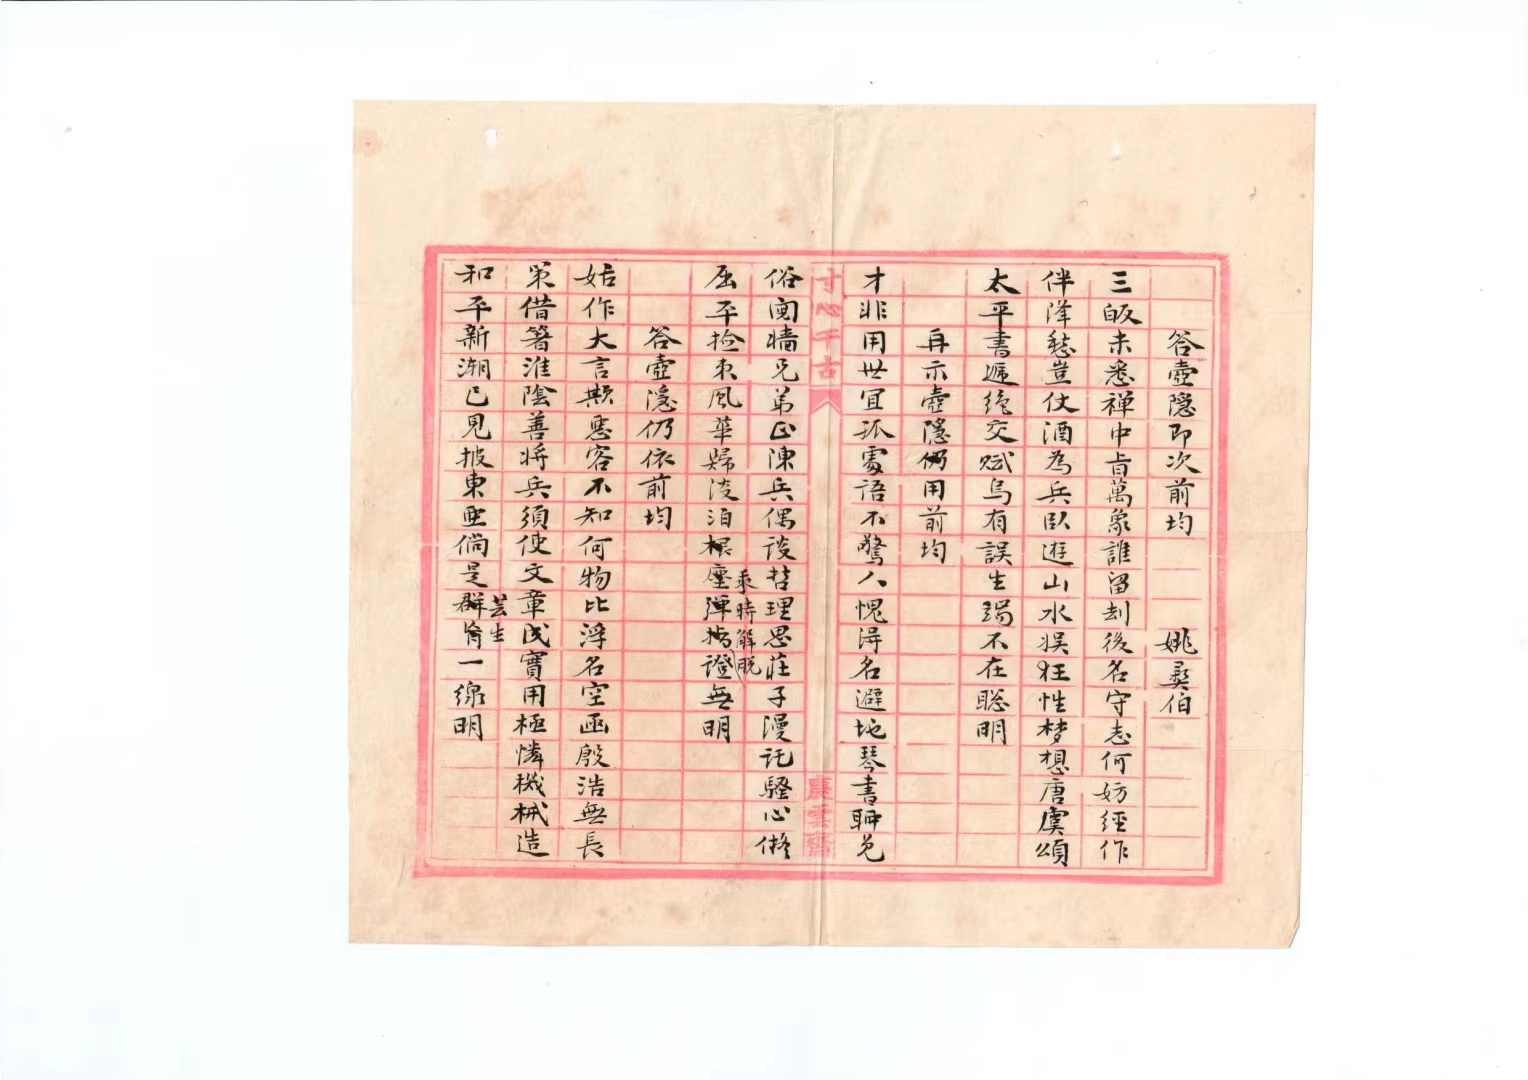 答壺隐即次前均 姚彛伯
三皈未悉禅中旨萬象誰留刦後名守志何妨經作
伴澤愁豈仗酒為兵臥逰山水娱狂性梦想唐虞頌
太平書遲绝交賦烏有誤生端不在聡明
再示壺隱仍用前均
才非用世宜孤露語不驚人愧浔名避地琴書聊免
俗鬩墙兄弟正陳兵偶谈哲理思莊子漫託騷心儗
屈平捡束風華歸淡泊根塵彈指證無明
乘時解脱
答壺隱仍依前均
姑作大言欺惡客不知何物比浮名空函殷浩無長
策借箸淮陰善将兵須使文章成實用極憐機械造
和平新潮已見披東亜倘是群肓一線明
芸生
寸心千古
慶雲齋